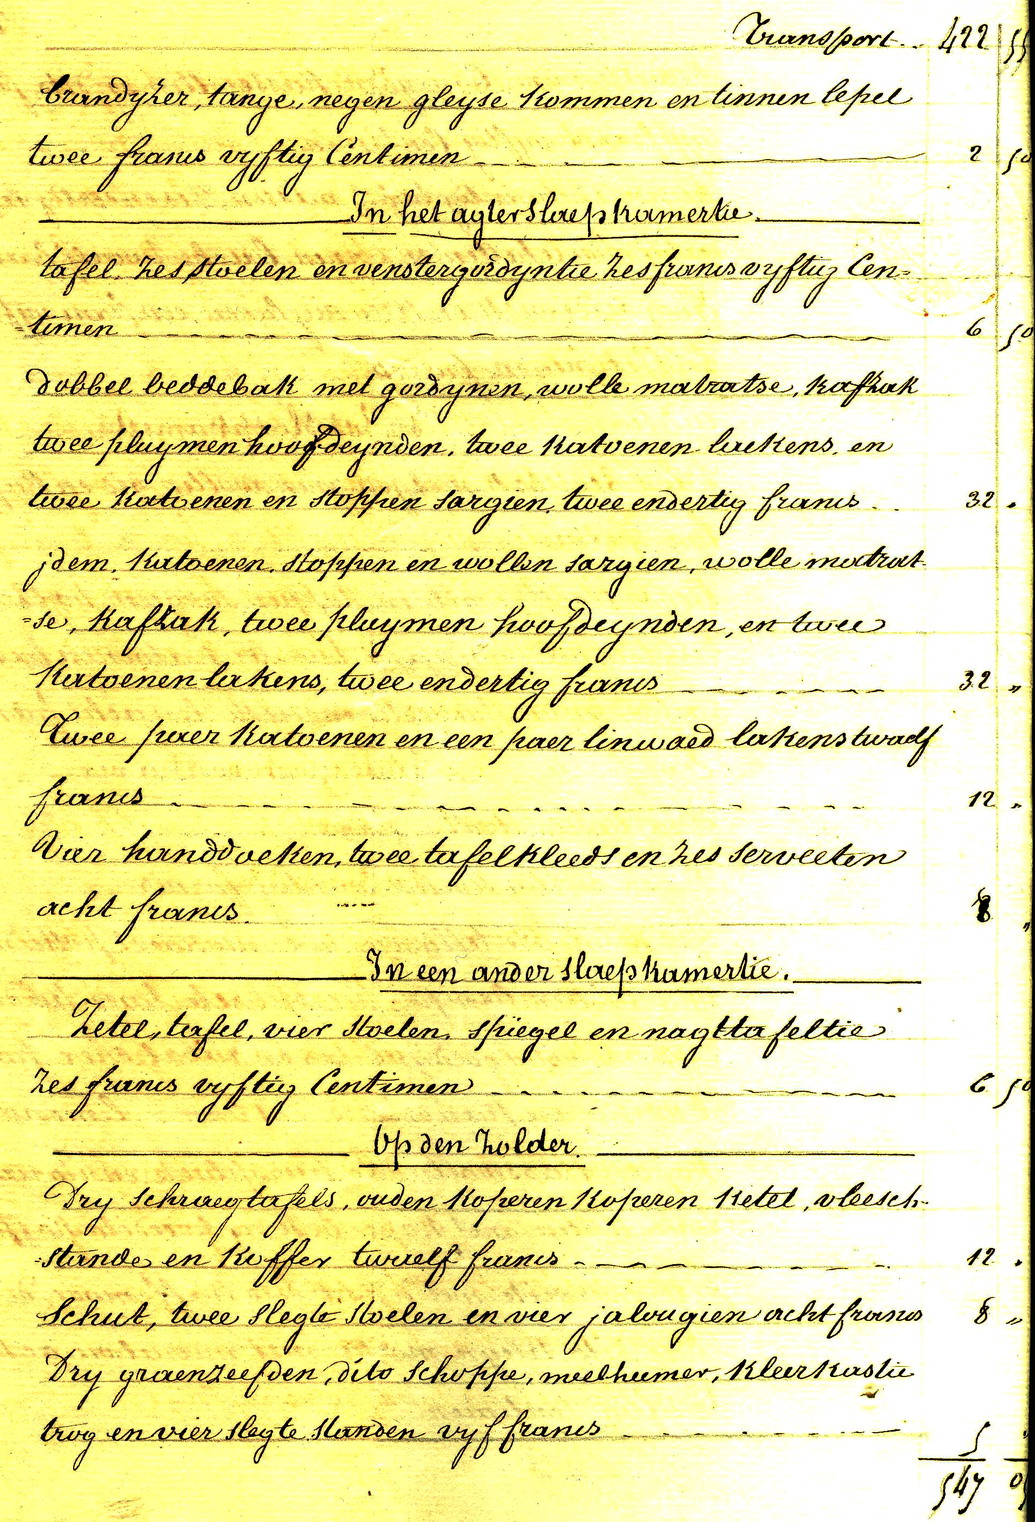 Transport.. 422 55
brandyzer, tange, negen gleyse kommen en tinnen lepel
twee francs vyftig Centimen 2 50
In het agter slaepkamertie.
tafel, zes stoelen en venstergordyntie zes francs vyftig Cen=
=timen 6 50
dobbel beddebak met gordynen, wolle matratse, kafzak
twee pluymen hoofdeynden, twee katoenen laekens, en
twee katoenen en stoppen sargien, twee endertig francs .. 32 "
jdem, katoenen, stoppen en wollen sargien, wolle matrat-
=se, kafzak, twee pluymen hoofdeynden, en twee
katoenen lakens, twee endertig francs 32 "
Twee paer katoenen en een paer linwaed lakens twaelf
francs 12 "
Vier handdoeken, twee tafelkleeds en zes serveeten
acht francs. 8 "
In een ander slaepkamertie.
Zetel, tafel, vier stoelen, spiegel en nagttafeltie
zes francs vyftig Centimen 6 50
Op den Zolder.
Dry schraegtafels, ouden koperen koperen ketel, vleesch-
=stande en koffer twaelf francs 12 "
Schut, twee slegte stoelen en vier jalougien acht francs 8 "
Dry graenzeefden, dito schoppe, meelheemer, kleerkastie
trog en vier slegte standen vyf francs 5
547 05